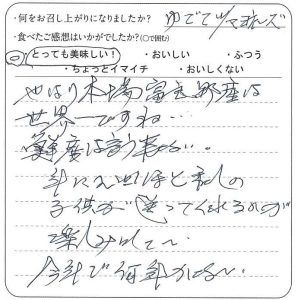 ・何をお召し上がりになりましたか？ ゆでてマヨネーズ
・食べたご感想はいかがでしたか？(○で囲む)
とっても美味しい！ ・おいしい ・ふつう
・ちょっとイマイチ ・おいしくない
やはり本場富良野産は
世界一ですね…
鮮度は
年に 回ほど私の
子供が送ってくれるのが
楽しみにして〜
今年で何年かな〜